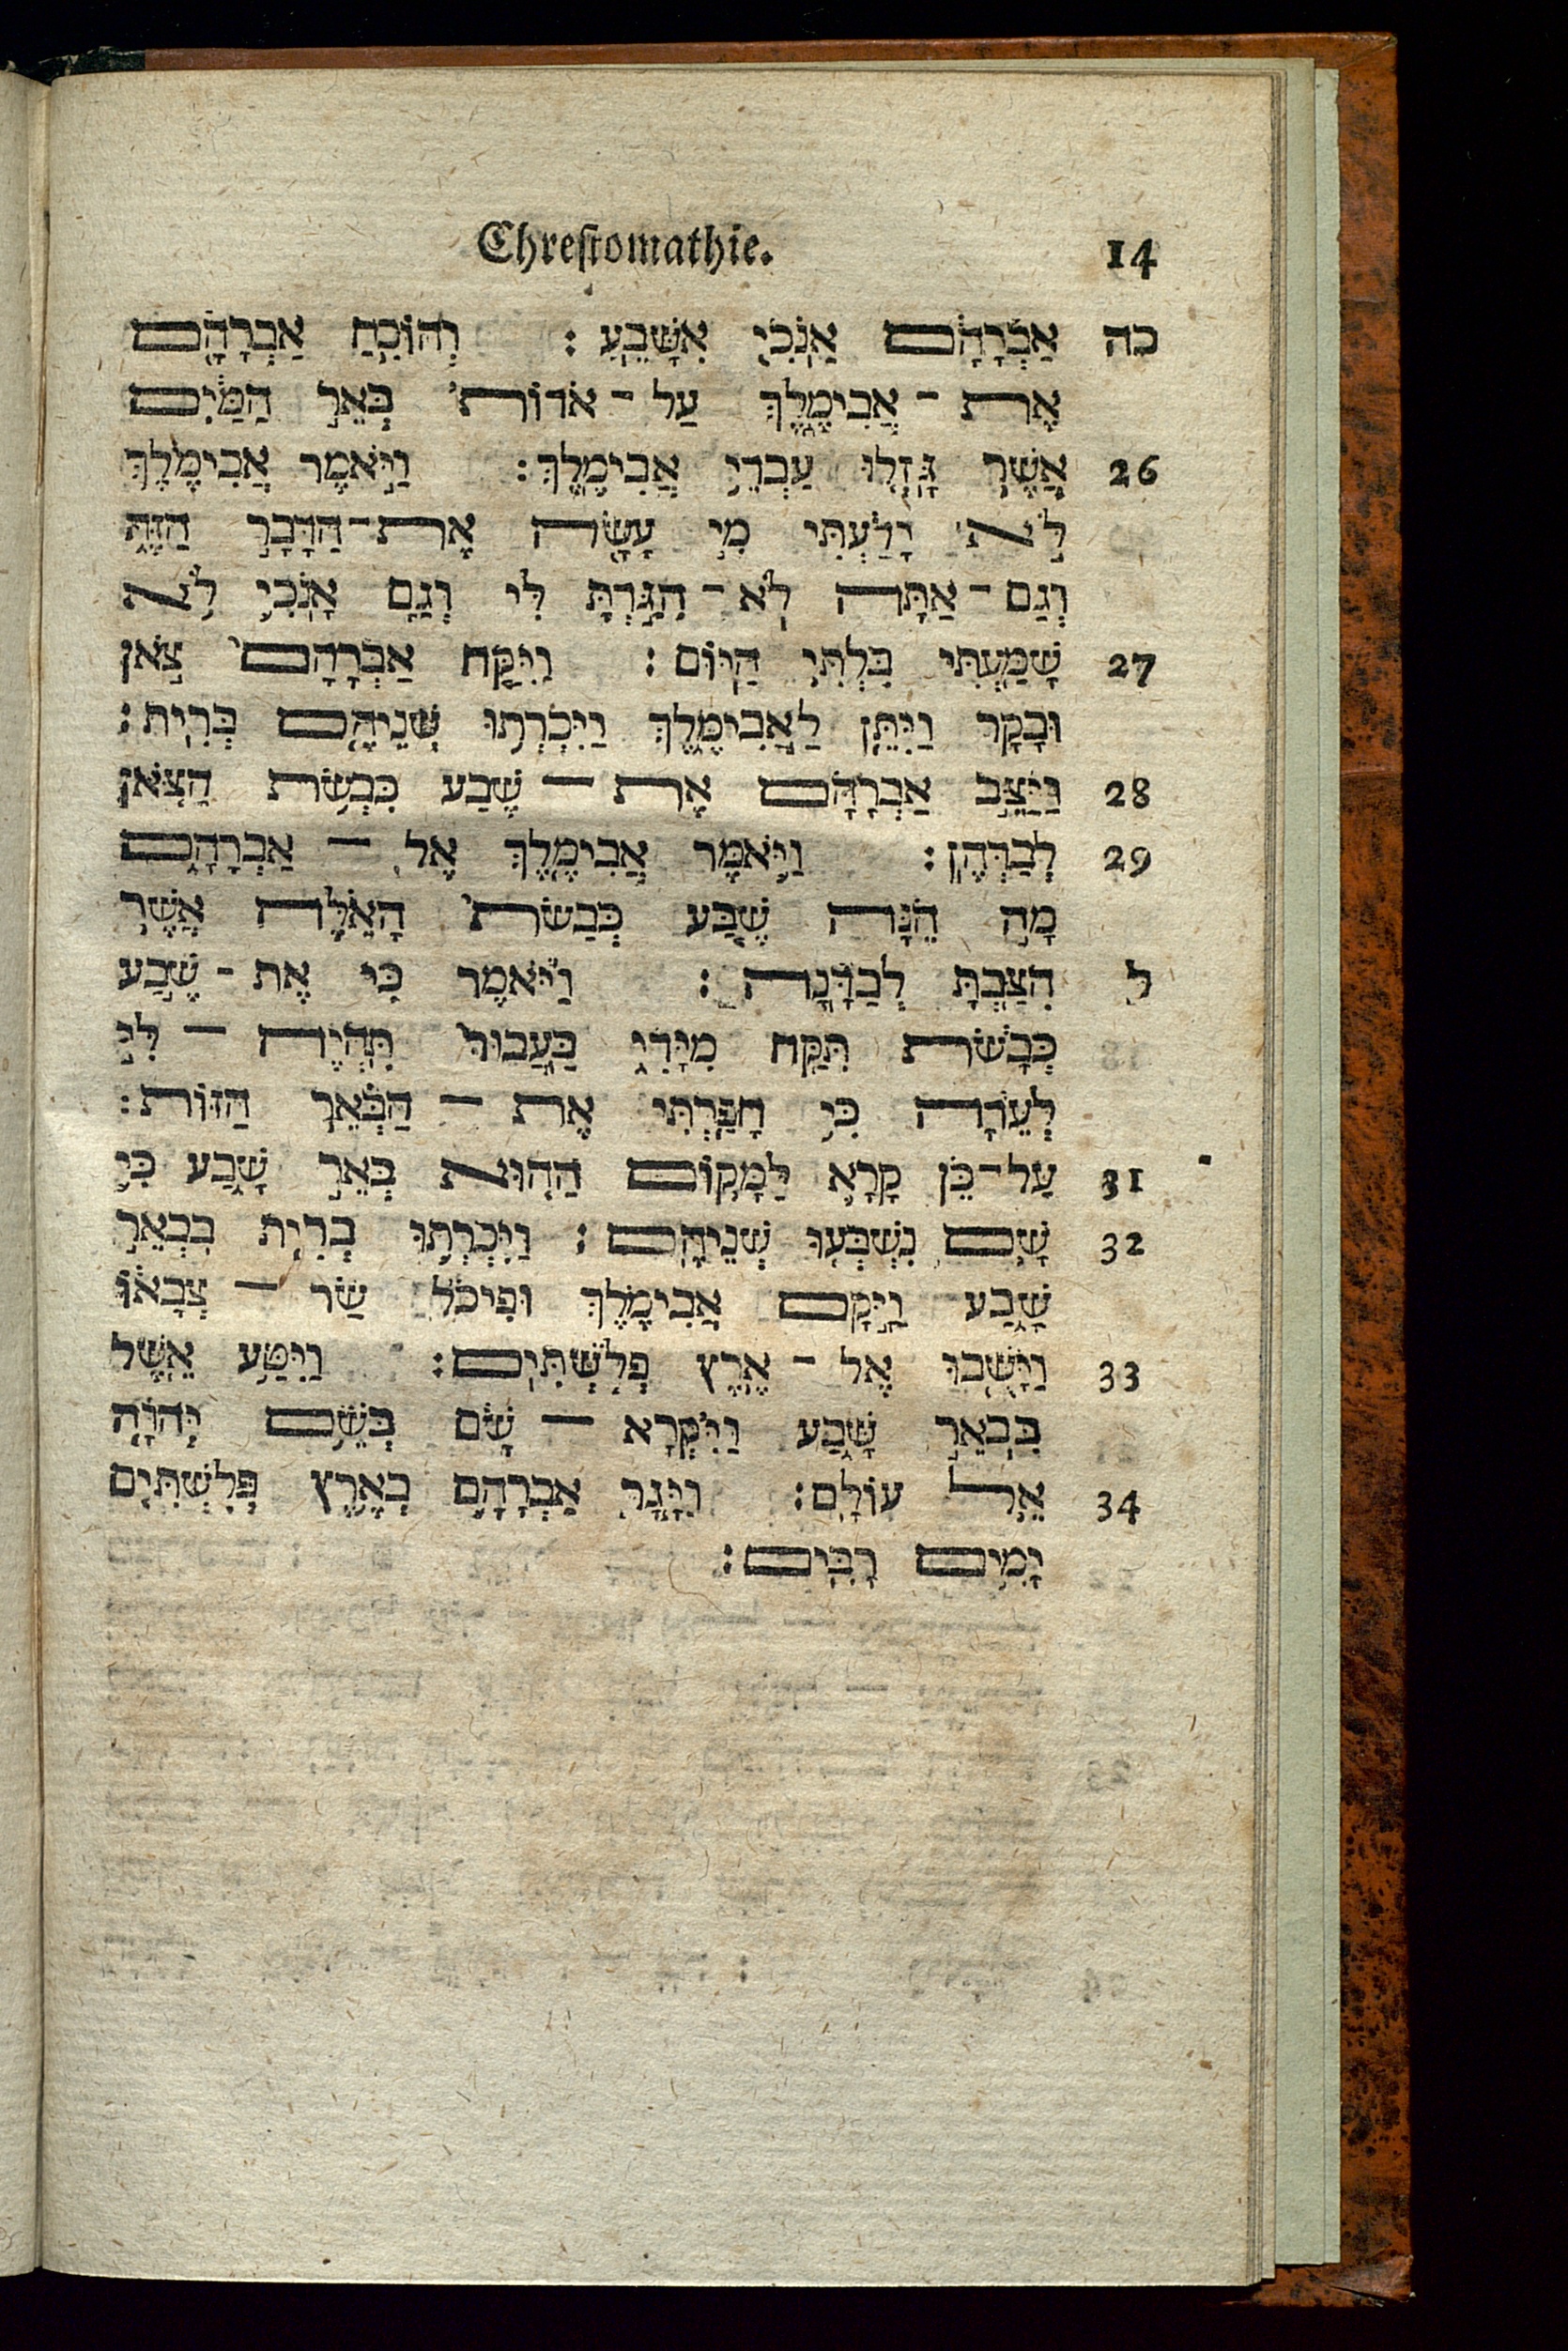 Chrestomathie. 14
כה אַבְרָהָ֔ם אָנֹכִ֖י אִשָּׁבֵֽעַ׃ וְהוֹכִ֥חַ אַבְרָהָ֖ם
אֶת־אֲבִימֶ֑לֶךְ עַל־אֹדוֹת֙ בְּאֵ֣ר הַמַּ֔יִם
26 אֲשֶׁ֥ר גָּֽזְל֖וּ עַבְדֵ֥י אֲבִימֶֽלֶךְ׃ וַיֹּ֣אמֶר אֲבִימֶ֔לֶךְ
לֹ֣א יָדַ֔עְתִּי מִ֥י עָשָׂ֖ה אֶת־הַדָּבָ֣ר הַזֶּ֑ה
וְגַם־אַתָּ֞ה לֹא־הִגַּ֣דְתָּ לִּ֗י וְגַ֧ם אָנֹכִ֛י לֹ֥א
27 שָׁמַ֖עְתִּי בִּלְתִּ֥י הַיּֽוֹם׃ וַיִּקַּ֤ח אַבְרָהָם֙ צֹ֣אן
וּבָקָ֔ר וַיִּתֵּ֖ן לַאֲבִימֶ֑לֶךְ וַיִּכְרְת֥וּ שְׁנֵיהֶ֖ם בְּרִֽית׃
28 וַיַּצֵּ֣ב אַבְרָהָ֗ם אֶת־שֶׁ֛בַע כִּבְשֹׂ֥ת הַצֹּ֖אן
29 לְבַדְּהֶֽן׃ וַיֹּ֥אמֶר אֲבִימֶ֖לֶךְ אֶל־אַבְרָהָ֑ם
מָ֣ה הֵ֗נָּה שֶׁ֤בַע כְּבָשֹׂת֙ הָאֵ֔לֶּה אֲשֶׁ֥ר
ל הִצַּ֖בְתָּ לְבַדָּֽנָה׃ וַיֹּ֕אמֶר כִּ֚י אֶת־שֶׁ֣בַע
כְּבָשֹׂ֔ת תִּקַּ֖ח מִיָּדִ֑י בַּעֲבוּר֙ תִּֽהְיֶה־לִּ֣י
לְעֵדָ֔ה כִּ֥י חָפַ֖רְתִּי אֶת־הַבְּאֵ֥ר הַזֹּֽאת׃
31 עַל־כֵּ֗ן קָרָ֛א לַמָּק֥וֹם הַה֖וּא בְּאֵ֣ר שָׁ֑בַע כִּ֛י
32 שָׁ֥ם נִשְׁבְּע֖וּ שְׁנֵיהֶֽם׃ וַיִּכְרְת֥וּ בְרִ֖ית בִּבְאֵ֣ר
שָׁ֑בַע וַיָּ֣קָם אֲבִימֶ֗לֶךְ וּפִיכֹל֙ שַׂר־צְבָא֔וֹ
33 וַיָּשֻׁ֖בוּ אֶל־אֶ֥רֶץ פְּלִשְׁתִּֽים׃ וַיִּטַּ֥ע אֵ֖שֶׁל
בִּבְאֵ֣ר שָׁ֑בַע וַיִּ֨קְרָא־שָׁ֔ם בְּשֵׁ֥ם יְהוָ֖ה
34 אֵ֥ל עוֹלָֽם׃ וַיָּ֧גָר אַבְרָהָ֛ם בְּאֶ֥רֶץ פְּלִשְׁתִּ֖ים
יָמִ֥ים רַבִּֽים׃